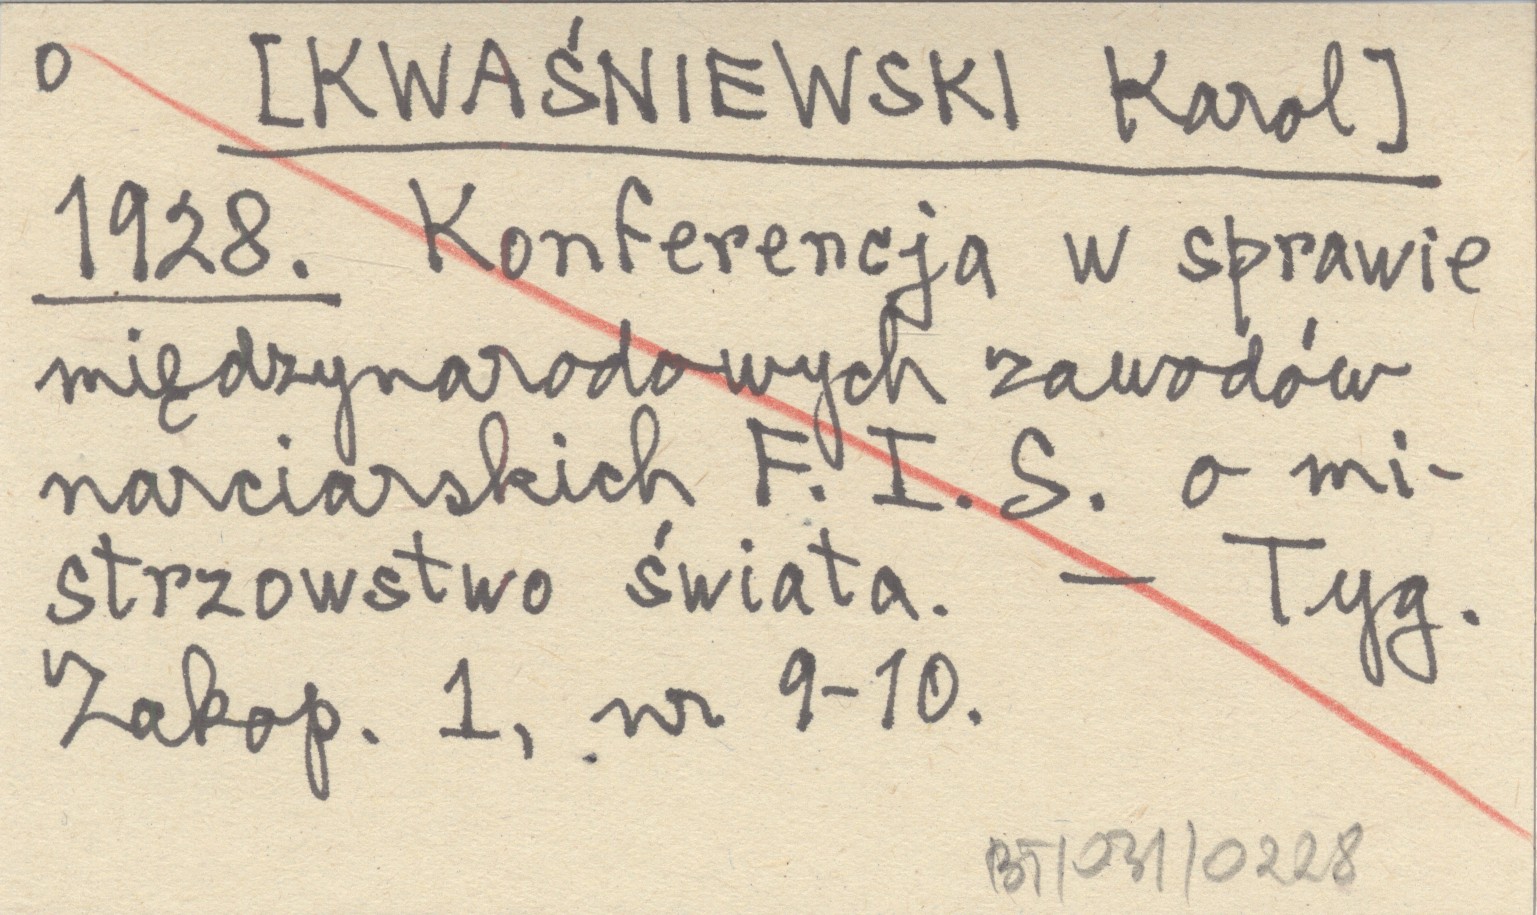 o [KWAŚNIEWSKI Karol]
1928. Konferencja w sprawie
międzynarodowych zawodów
narciarskich F. I. S. o mi-
strzowstwo świata. — Tyg.
Zakop. 1, nr 9-10.
BT/031/0228